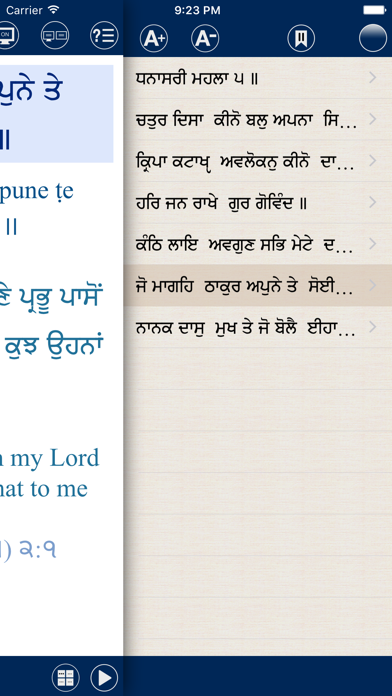 Carrier 9:23 PM
ON ?
A+ A-
ਪੁਨੇ ਤੇ
॥
pune ṯe
॥
ਣੇ ਪ੍ਰਭੂ ਪਾਸੋਂ
ਕੁਝ ਉਹਨਾਂ
n my Lord
hat to me
) ੨:੧
ਧਨਾਸਰੀ ਮਹਲਾ ੫ ॥
ਚਤੁਰ ਦਿਸਾ ਕੀਨੋ ਬਲੁ ਅਪਨਾ ਸਿ...
ਕ੍ਰਿਪਾ ਕਟਾਖੵ ਅਵਲੋਕਨੁ ਕੀਨੋ ਦਾ...
ਹਰਿ ਜਨ ਰਾਖੇ ਗੁਰ ਗੋਵਿੰਦ ॥
ਕੰਠਿ ਲਾਇ ਅਵਗੁਣ ਸਭਿ ਮੇਟੇ ਦ...
ਜੋ ਮਾਗਹਿ ਠਾਕੁਰ ਅਪੁਨੇ ਤੇ ਸੋਈ...
ਨਾਨਕ ਦਾਸੁ ਮੁਖ ਤੇ ਜੋ ਬੋਲੈ ਈਹਾ...